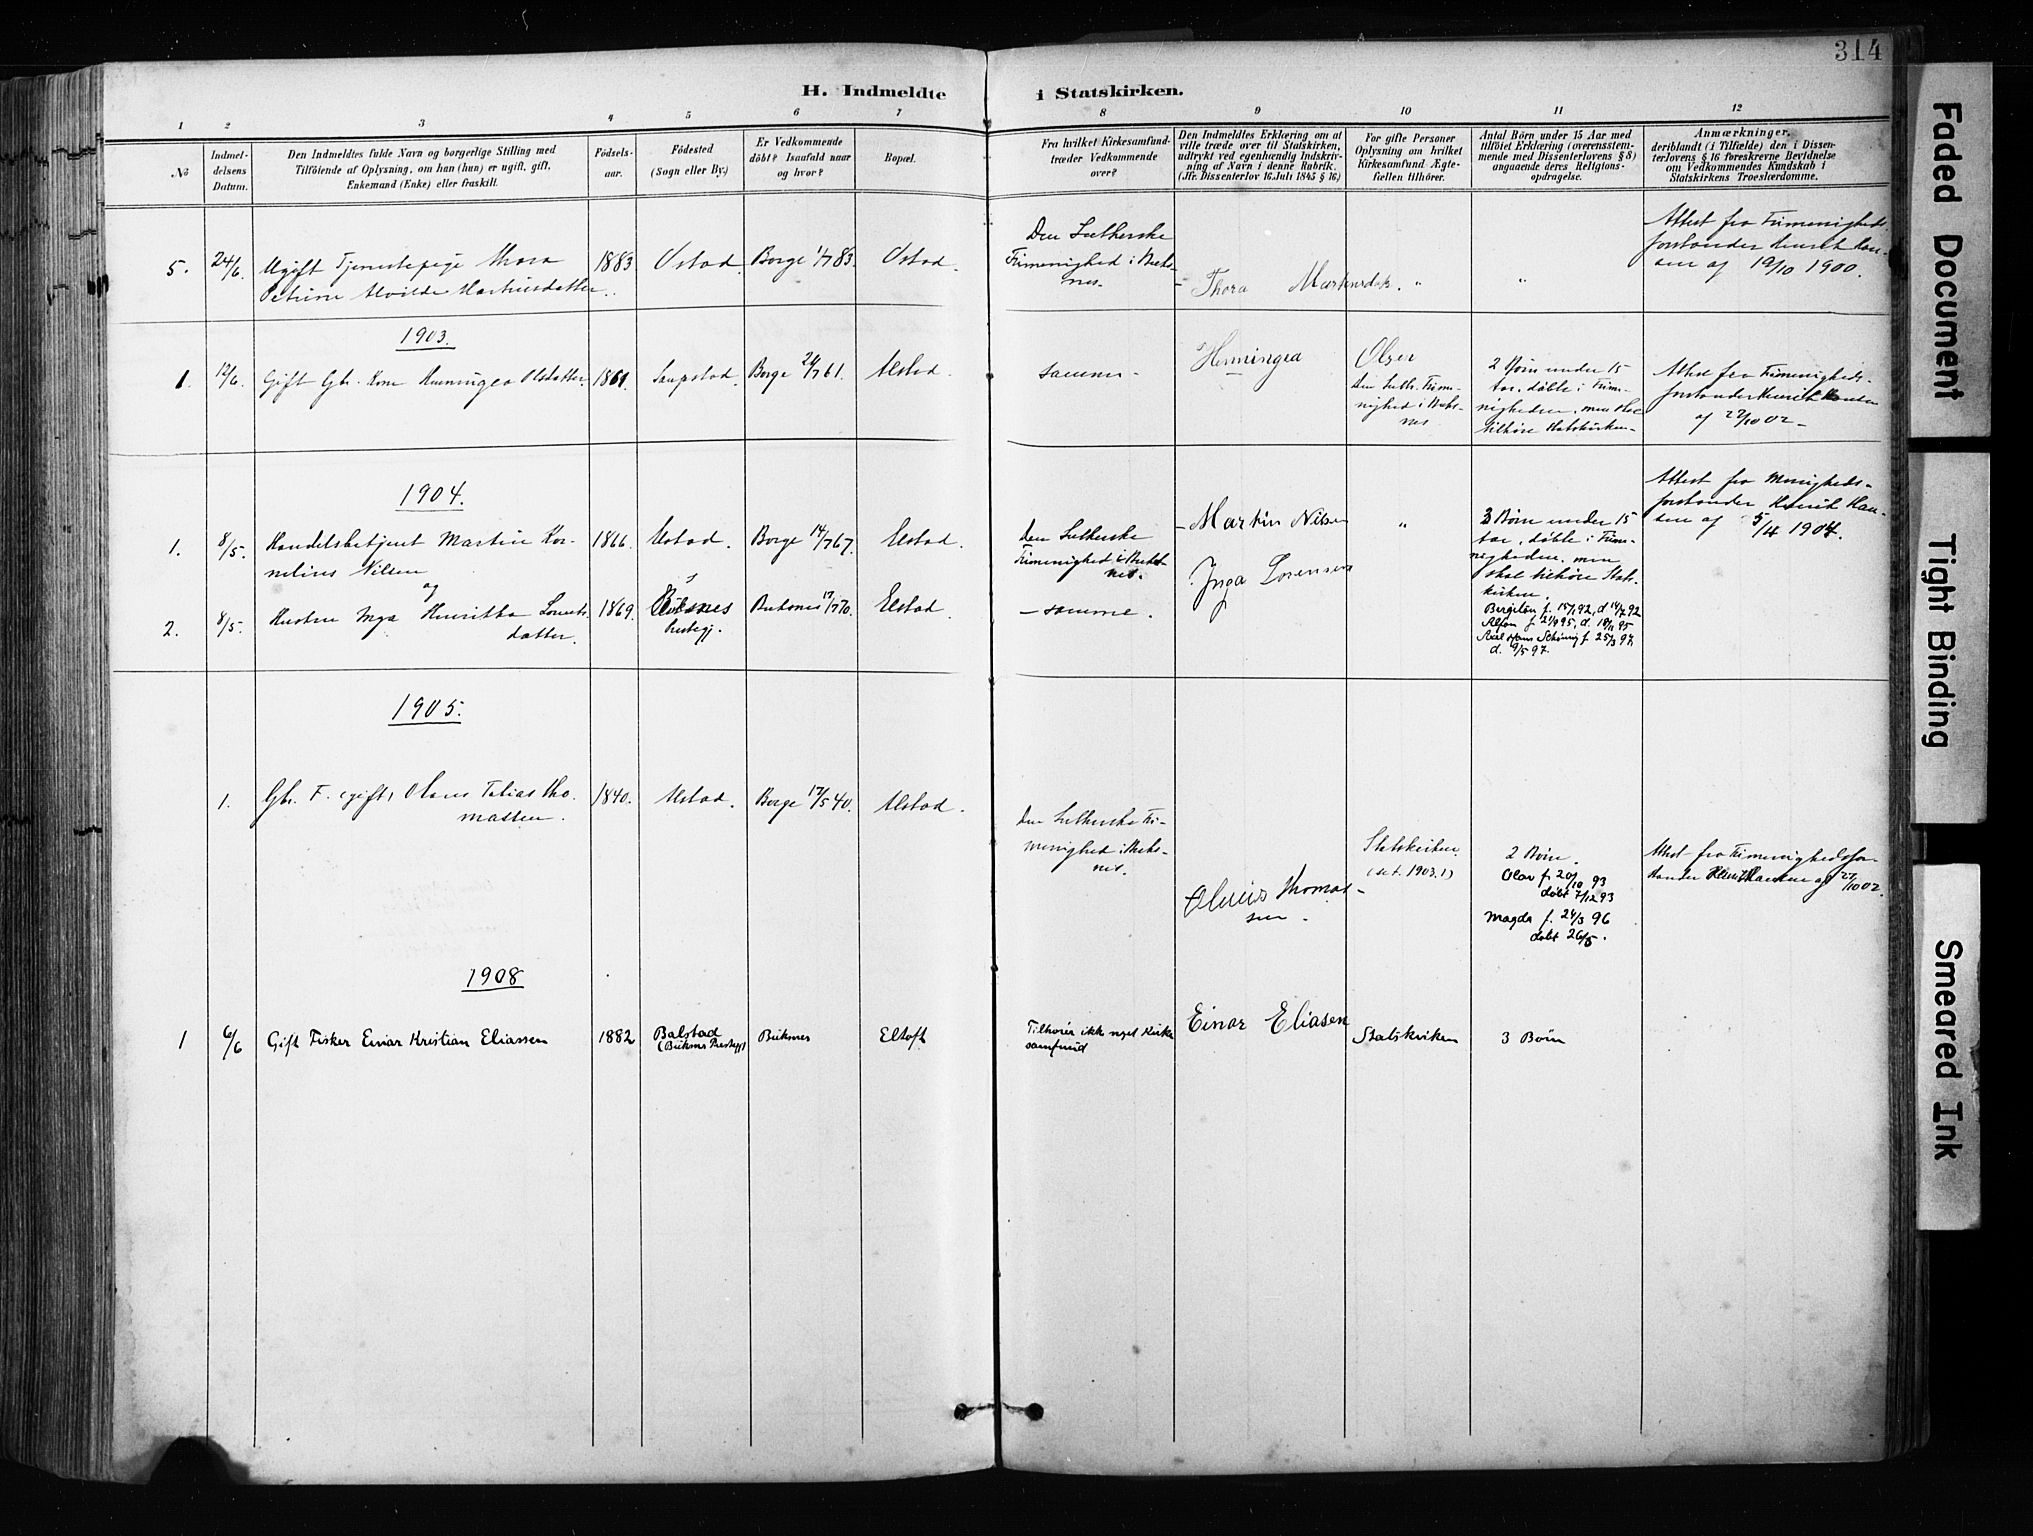 314
H. Indmeldte i Statskirken.
1 2 3 4 5 6 7 8 9 10 11 12
No
Indmel-
delsens
Datum.
Den Indmeldtes fulde Navn og borgerlige Stilling med
Tilföiende af Oplysning, om han (hun) er ugift, gift,
Enkemand (Enke) eller fraskilt.
Födsels-
aar.
Födested
(Sogn eller By.)
Er Vedkommende
döbt? Isaafald naar
og hvor?
Bopæl.
Fra hvilket Kirkesamfund
træder Vedkommende
over?
Den Indmeldtes Erklæring om at
ville træde over til Statskirken,
udtrykt ved egenhændig Indskriv-
ning af Navn i denne Rubrik.
(Jfr. Dissenterlov 16. Juli 1845 § 16)
For gifte Personer
Oplysning om hvilket
Kirkesamfund Ægte-
fællen tilhörer.
Antal Börn under 15 Aar med
tilföiet Erklæring (overensstem-
mende med Dissenterlovens § 8)
angaaende deres Religions-
opdragelse.
Anmærkninger,
deriblandt (i Tilfælde) den i Dissen-
terlovens § 16 foreskrevne Bevidnelse
om Vedkommendes Kundskab i
Statskirkens Troeslærdomme.
5. 24/6. Ugift Tjenestepige Thora
Petrine Alvilde Martinsdatter.
1883
Ustad.
Borge 1/7 83.
Ustad.
Den Lutherske
Frimenighed i Buks-
nes.
Thora Martinsdtr.
"
"
Attest fra Frimenigheds
forstander Henrik Han-
sen af 19/10 1900.
1903.
1. 12/6. Gift Gbr. Kone Henningea Olsdatter.
1861.
Saupstad.
Borge 24/7 61.
Alstad.
samme.
Henningea Olsen
Den Luth. Frime-
nighed i Buks-
nes
2 Børn under 15
Aar, døbte i Frime-
nigheden, men skal
tilhøre Statskirken.
Attest fra Frimenigheds-
forstander Henrik Hansen
af 22/10 02
1904.
1. 8/5. Handelsbetjent Martin Kor-
nelius Nilsen
og
1866.
Alstad.
Borge 14/7 67.
Alstad.
Den Lutherske
Frimenighed i Buks-
nes.
Martin Nilsen
"
3 Børn under 15
Aar, døbte i Frime-
nigheden, men
skal tilhøre Stats-
kirken.
Attest fra Menigheds-
forstander Henrik Han-
sen af 5/4 1904.
2. 8/5. Hustru Inga Henritha Lorents-
datter.
1869.
Buksnes
prestegj.
Buksnes 17/7 70.
Elstad.
samme.
Inga Lorensen
Bergiton f. 15/1 92, d 14/2 92
Alfon f. 21/9 95, d. 18/11 95
Axel Hans Schøning f. 25/3 97,
d. 9/5 97.
1905.
1. Gbr. F. (gift) Olaus Tobias Tho-
massen.
1840.
Alstad.
Borge 17/5 40.
Alstad.
Den Lutherske Fri-
menighed i Buks-
nes.
Oluus Thomas-
sen
Statskirken
(se f. 1903. 1)
2 Børn.
Olav f. 20/10 93
døbt 7/12 93
Magda f. 24/3 96
døbt 26/5.
Attest fra Frimenighedsfor-
stander Henrik Hansen af 27/10 02.
1908
1 6/6 Gift Fisker Einar Kristian Eliassen
1882
Balstad
(Buksnes Prestegj)
Buksnes
Eltoft
Tilhører ikke noget Kirke
samfund
Einar Eliasen
Statskirken
3 Børn
Faded Document
Tight Binding
Smeared Ink